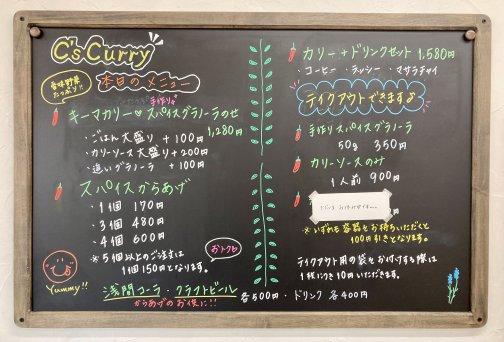 C's Curry
香味野菜
たっぷり!!
本日のメニュー
手作り
キーマカリー♡スパイスグラノーラのせ
1,280円
・ごはん大盛り +100円
・カリーソース大盛り +200円
・追いグラノーラ +100円
スパイスからあげ
・1個 170円
・3個 480円
・4個 600円
※5個以上のご注文は
1個150円となります。
おトク
Yummy!!
浅間コーラ・クラフトビール 各500円・ドリンク 各400円
からあげのお供に!!
カリー+ドリンクセット 1,580円
・コーヒー ・ラッシー ・マサラチャイ
テイクアウトできます♪
手作りスパイスグラノーラ
50g 350円
カリーソースのみ
1人前 900円
※いずれも容器をお持ちいただくと
100円引きとなります。
テイクアウト用の袋をお付けする際は
1枚につき10円いただきます。